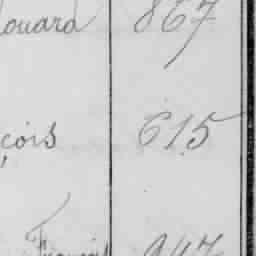 douard 867
çois 615
François 947